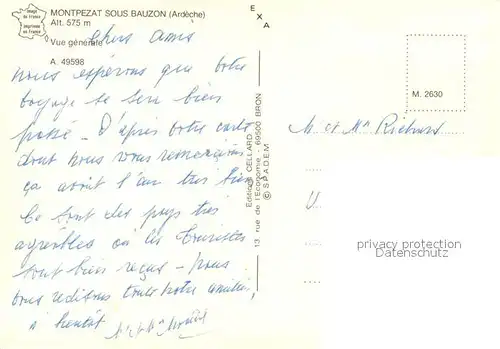 image de france
imprimée en france
MONTPEZAT SOUS BAUZON (Ardèche)
Alt. 575 m
Vue générale
A. 49598
Chers Amis
nous espérons que votre
voyage se sera bien
passé - D'après votre carte
dont nous vous remercions,
ça avait l'air très bien
Ce sont des pays très
agréables où les touristes
sont bien reçus - Nous
vous redisons toute notre amitié,
à bientôt
EXA
Editions CELLARD
13, rue de l'Economie - 69500 BRON
© SPADEM
M. 2630
M. et Mme
privacy protection
Datenschutz